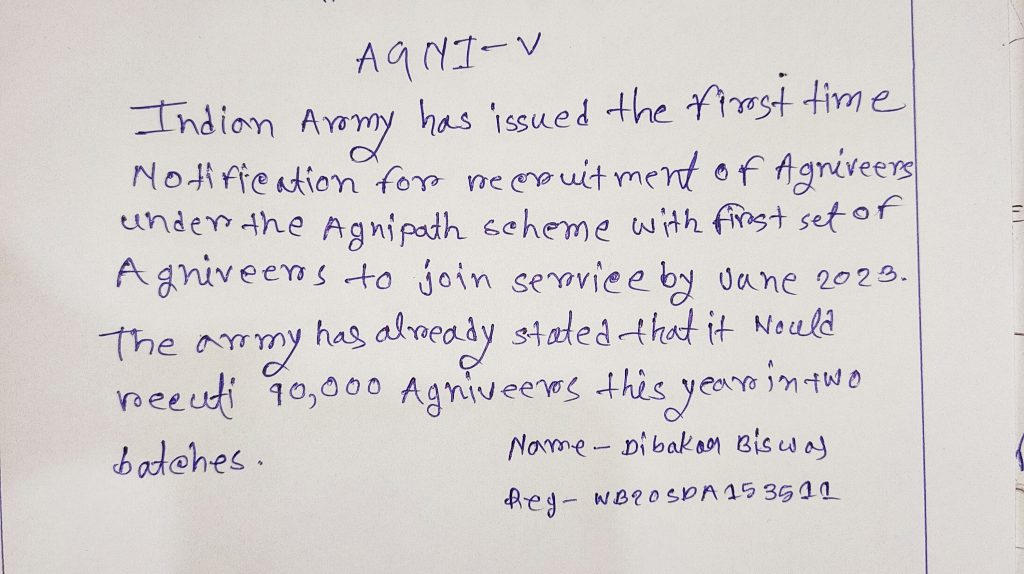 AGNI-V
Indian Army has issued the First time
Notification for recruitment of Agniveers
under the Agnipath scheme with first set of
Agniveers to join service by June 2023.
The army has already stated that it Would
recuti 90,000 Agniveers this year in two
batches.
Name - Dibakar Biswas
Reg - WB20SDA153511